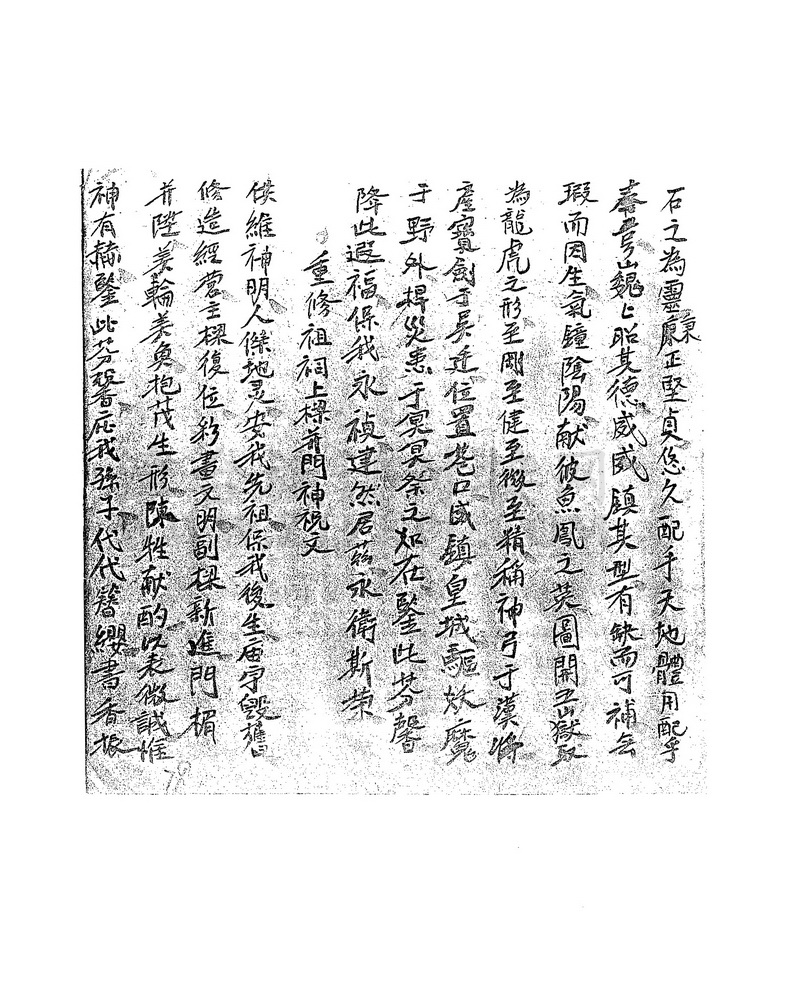 石之為靈稟正堅貞悠久配乎天地體用配乎
奉嵩山巍上昭其德威威鎮其型有缺而可補無
瑕而因生氣鐘陰陽献彼魚鳳之英圖開五嶽取
為龍虎之形至剛至健至微至精稱神弓于漢將
產寶劍于吳廷位置巷口威鎮皇城驅效魔
于野外捍災患于冥冥祭之如在鑒此芬馨
降此遐福保我永禎建然居兹永衛斯荣
重修祖祠上樑并門神祝文
維神明人傑地灵安我先祖保我後生庙宇毀舊
修造經营主樑復位彩畫文明副樑新進門楣
并陞美輪美奐抱茂生形陳牲献酌以表微誠惟
神有赫鑒此芬馨庇我孫子代代簪纓書香振
78